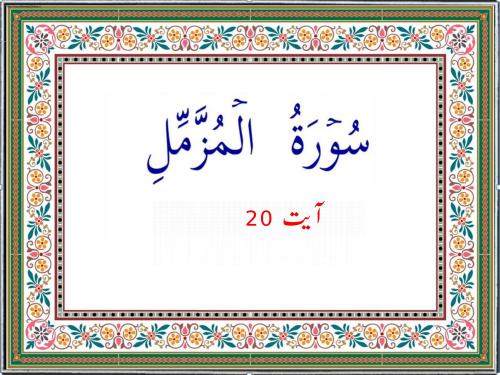 سُوۡرَةُ الۡمُزَّمِّلِ
آیت 20